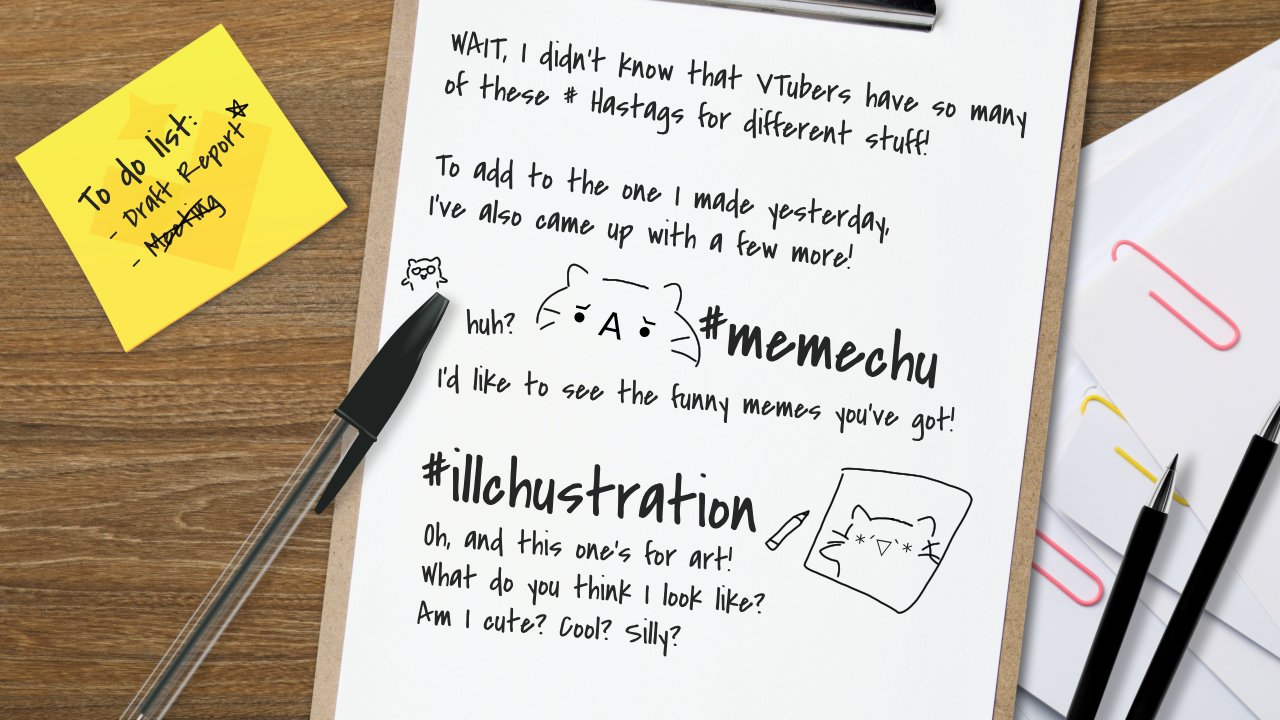 To do list:
- Draft Report
- Meeting
WAIT, I didn't know that VTubers have so many
of these # Hastags for different stuff!
To add to the one I made yesterday,
I've also came up with a few more!
huh?
A
#memechu
I'd like to see the funny memes you've got!
#illchustration
Oh, and this one's for art!
What do you think I look like?
Am I cute? Cool? Silly?